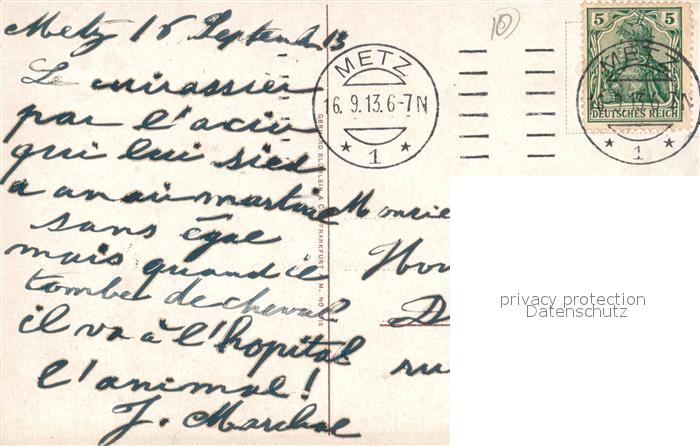 Metz 16 Septembre 13
Le cuirassier
par l'acier
qui lui sied
a un air martial
sans égal
mais quand il
tombe de cheval
il va à l'hopital
l'animal !
J. Marchal
10
METZ
16.9.13.6-7N
* 1 *
5 5
DEUTSCHES REICH
METZ
16.9.13.6-7N
* 1 *
Monsie
D
ru
privacy protection
Datenschutz